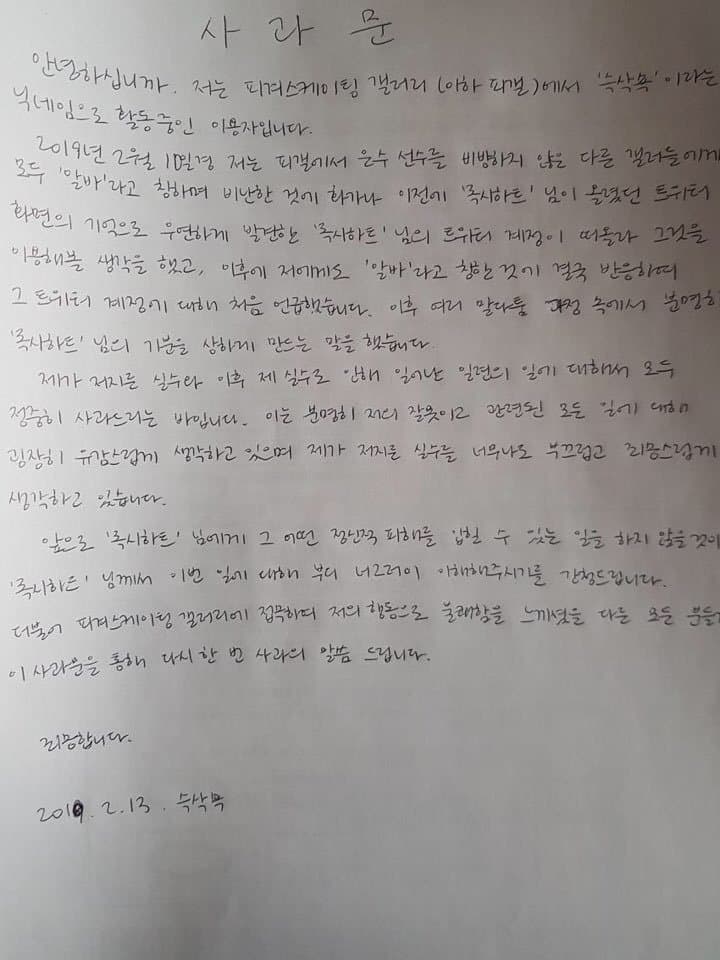 사 과 문
안녕하십니까. 저는 피겨스케이팅 갤러리 (이하 피갤)에서 '슥삭욕'이라는
닉네임으로 활동중인 이용자입니다.
2019년 2월 10일경 저는 피갤에서 은수 선수를 비방하지 않은 다른 갤러들에게
모두 '알바'라고 칭하며 비난한 것에 화가나 이전에 '록시하트' 님이 올렸던 트위터
화면의 기억으로 우연하게 발견한 '록시하트' 님의 트위터 계정이 떠올라 그것을
이용해볼 생각을 했고, 이후에 저에게도 '알바'라고 칭한것에 결국 반응하며
그 트위터 계정에 대해 처음 언급했습니다. 이후 여러 말다툼 과정 속에서 분명히
'록시하트' 님의 기분을 상하게 만드는 말을 했습니다.
제가 저지른 실수와 이후 제 실수로 인해 일어난 일련의 일에 대해서 모두
정중히 사과드리는 바입니다. 이는 분명히 저의 잘못이고 관련된 모든 일에 대해
굉장히 유감스럽게 생각하고 있으며 제가 저지른 실수를 너무나도 부끄럽고 죄송스럽게
생각하고 있습니다.
앞으로 '록시하트' 님에게 그 어떤 정신적 피해를 입힐 수 있는 일을 하지 않을것이
'록시하트' 님께서 이번 일에 대해 부디 너그러이 이해해주시기를 간청드립니다.
더불어 피겨스케이팅 갤러리에 접속하며 저의 행동으로 불쾌함을 느끼셨을 다른 모든 분들
이 사과문을 통해 다시 한 번 사과의 말씀 드립니다.
죄송합니다.
2019. 2. 13. 슥삭욕